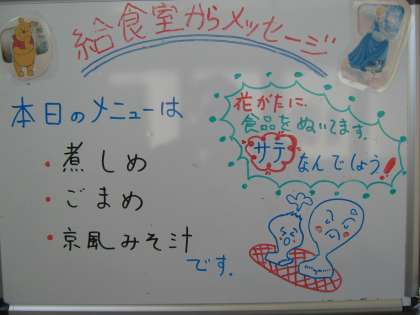 給食室からメッセージ
本日のメニューは
・煮しめ
・ごまめ
・京風みそ汁
です。
花がたに
食品をぬいてます。
サテ
なんでしょう!